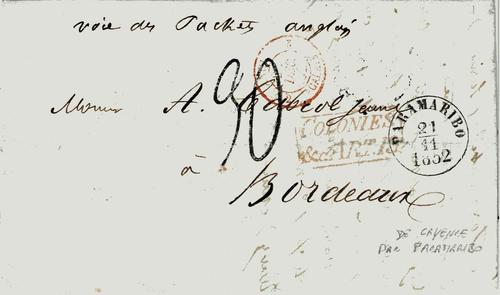 voie des Packets anglais
90
A. Cabrol jeune
COLONIES
& C. ART.
PARAMARIBO
21
11
1852
à
Bordeaux
DE CAYENNE
PAR PARAMARIBO